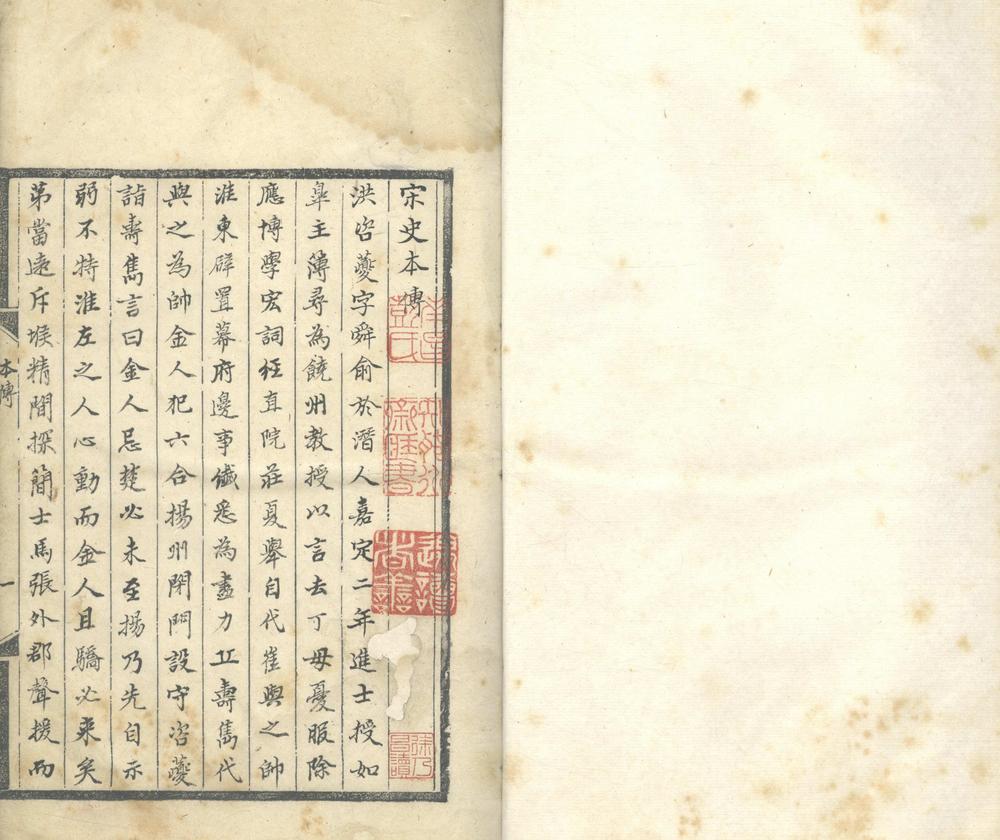 宋史本傳
洪咨夔字舜俞於潛人嘉定二年進士授如
臯主薄尋為饒州教授以言去丁母憂服除
應博學宏詞科直院莊夏舉自代崔與之帥
淮東辟置幕府邊事纎悉為盡力丘壽雋代
與之為帥金人犯六合揚州閉門設守咨夔
詣壽雋言曰金人忌楚必未至揚乃先自示
弱不特淮左之人心動而金人且驕必来矣
第當遠斥堠精間探簡士馬張外郡聲援而
本傳
一